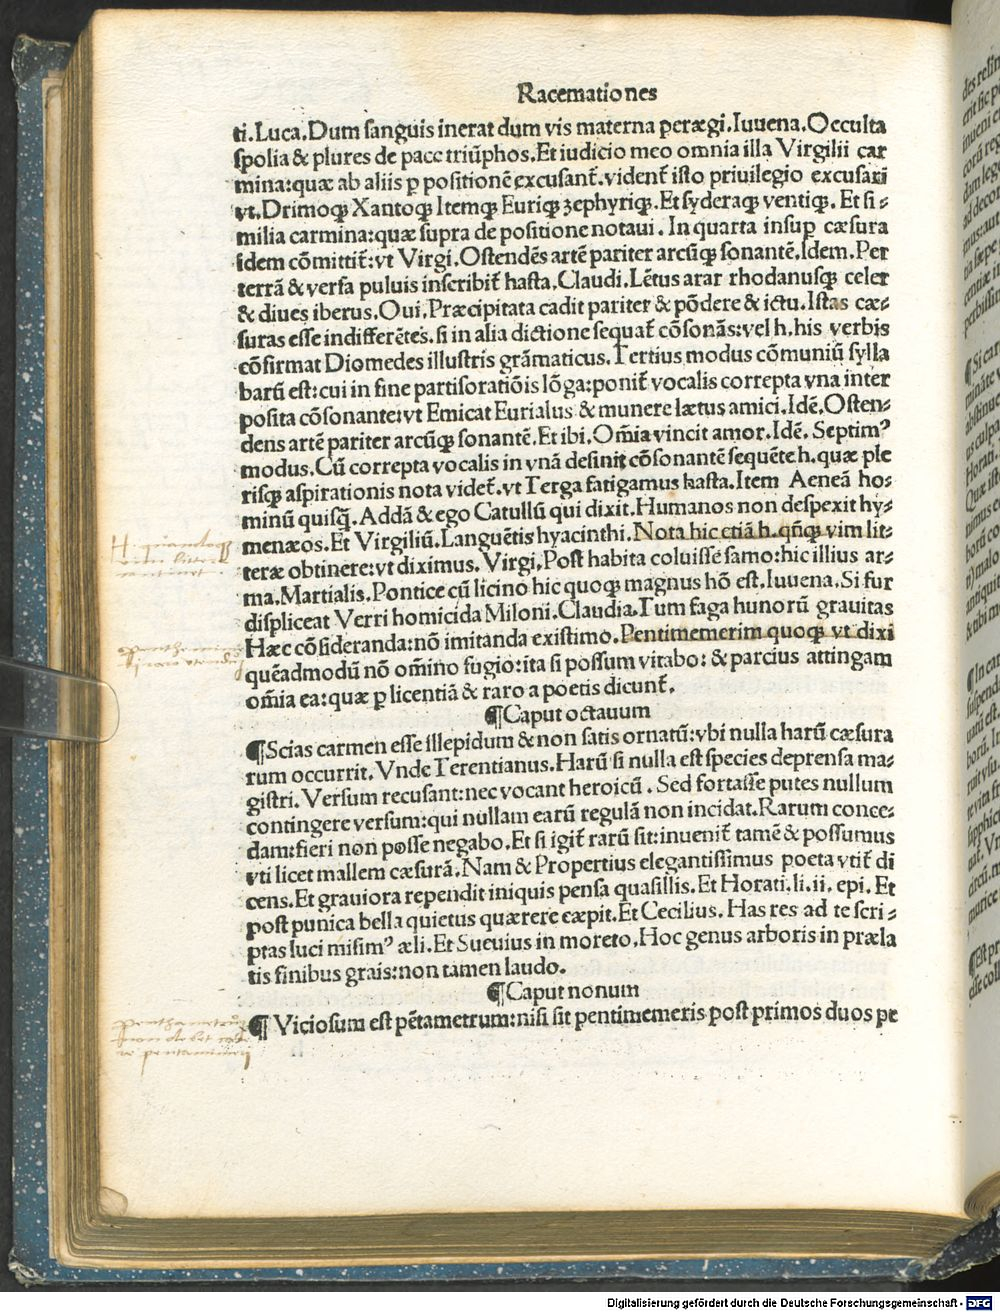 Racemationes
ti.Luca.Dum sanguis inerat dum vis materna peræegi.Iuuena.Occulta
spolia & plures de pace triũphos.Et iudicio meo omnia illa Virgilii car
mina:quæ ab aliis ꝑ positionẽ excusant̃.vident̃ isto priuilegio excusari
vt.Drimoqꝫ Xantoqꝫ Itemqꝫ Euriqꝫ zephyriqꝫ.Et syderaqꝫ ventiqꝫ.Et si⸗
milia carmina:quæ supra de positione notaui.In quarta insuꝑ cæsura
idem cõmittit̃:vt Virgi.Ostendẽs artẽ pariter arcũqꝫ sonantẽ.Idem.Per
terrã & versa puluis inscribit̃ hasta.Claudi.Lẽtus arar rhodanusqꝫ celer
& diues iberus.Oui.Præcipitata cadit pariter & põdere & ictu.Istas cæ⸗
suras esse indifferẽtes.si in alia dictione sequat̃ cõsonãs:vel h.his verbis
cõfirmat Diomedes illustris grãmaticus.Tertius modus cõmuniũ sylla
barũ est:cui in fine partisoratiõis lõga:ponit̃ vocalis correpta vna inter
posita cõsonante:vt Emicat Eurialus & munere lætus amici.Idẽ.Osten⸗
dens artẽ pariter arcũqꝫ sonantẽ.Et ibi.Om̃ia vincit amor.Idẽ.Septimꝰ
modus.Cũ correpta vocalis in vnã desinit cõsonantẽ sequẽte h.quæ ple
risqꝫ aspirationis nota videt̃.vt Terga fatigamus hasta.Item Aeneã ho⸗
minũ quisq̃.Addã & ego Catullũ qui dixit.Humanos non despexit hy⸗
menæos.Et Virgiliũ.Languẽtis hyacinthi.Nota hic etiã h.qñqꝫ vim lit⸗
teræ obtinere:vt diximus.Virgi.Post habita coluisse samo:hic illius ar⸗
ma.Martialis.Pontice cũ licino hic quoqꝫ magnus hõ est.Iuuena.Si fur
displiceat Verri homicida Miloni.Claudia.Tum faga hunorũ grauitas
Hæc cõsideranda:nõ imitanda existimo.Pentimemerim quoqꝫ vt dixi
quẽadmodũ nõ om̃ino fugio:ita si possum vitabo: & parcius attingam
om̃ia ea:quæ ꝑ licentiã & raro a poetis dicunt̃.
¶Caput octauum
¶Scias carmen esse illepidum & non satis ornatũ:vbi nulla harũ cæsura
rum occurrit.Vnde Terentianus.Harũ si nulla est species deprensa ma⸗
gistri.Versum recusant:nec vocant heroicũ.Sed fortasse putes nullum
contingere versum:qui nullam earũ regulã non incidat.Rarum conce⸗
dam:fieri non posse negabo.Et si igit̃ rarũ sit:inuenit̃ tamẽ & possumus
vti licet mallem cæsurã.Nam & Propertius elegantissimus poeta vtit̃ di
cens.Et grauiora rependit iniquis pensa quasillis.Et Horati.li.ii.epi.Et
post punica bella quietus quærere cæpit.Et Cecilius.Has res ad te scri⸗
ptas luci misimꝰ æli.Et Sueuius in moreto.Hoc genus arboris in præla
tis finibus grais:non tamen laudo.
¶Caput nonum
¶ Viciosum est pẽtametrum:nisi sit pentimemeris post primos duos pe
Digitalisierung gefördert durch die Deutsche Forschungsgemeinschaft - DFG